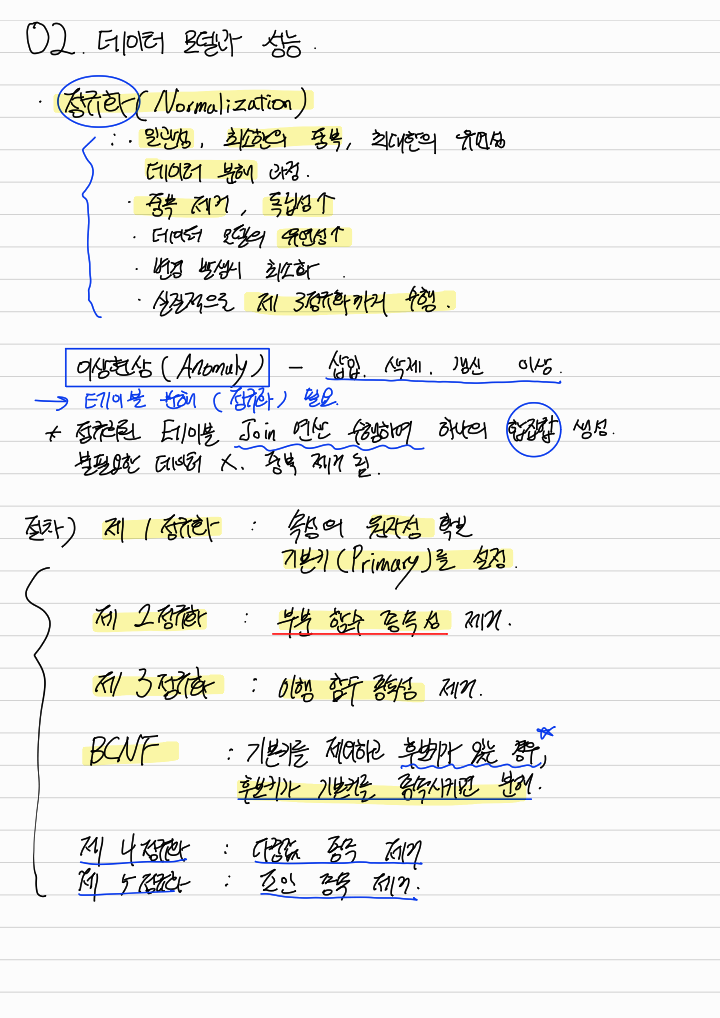 02. 데이터 모델과 성능.
· 정규화 (Normalization)
: · 일관성, 최소한의 중복, 최대한의 유연성
데이터 분해 과정.
· 중복 제거, 독립성↑
· 데이터 모델의 유연성↑
· 변경 발생시 최소화.
· 실질적으로 제 3정규화까지 수행.
이상현상 (Anomaly) - 삽입. 삭제. 갱신 이상.
→ 테이블 분해 (정규화) 필요.
* 정규화된 테이블 Join 연산 수행하여 하나의 합집합 생성.
불필요한 데이터 X. 중복 제거 됨.
절차) 제 1정규화 : 속성의 원자성 확보
기본키(Primary)를 설정.
제 2정규화 : 부분 함수 종속성 제거.
제 3정규화 : 이행 함수 종속성 제거.
BCNF : 기본키를 제외하고 후보키가 있는 경우,
후보키가 기본키를 종속시키면 분해.
제 4정규화 : 다중값 종속 제거
제 5정규화 : 조인 종속 제거.